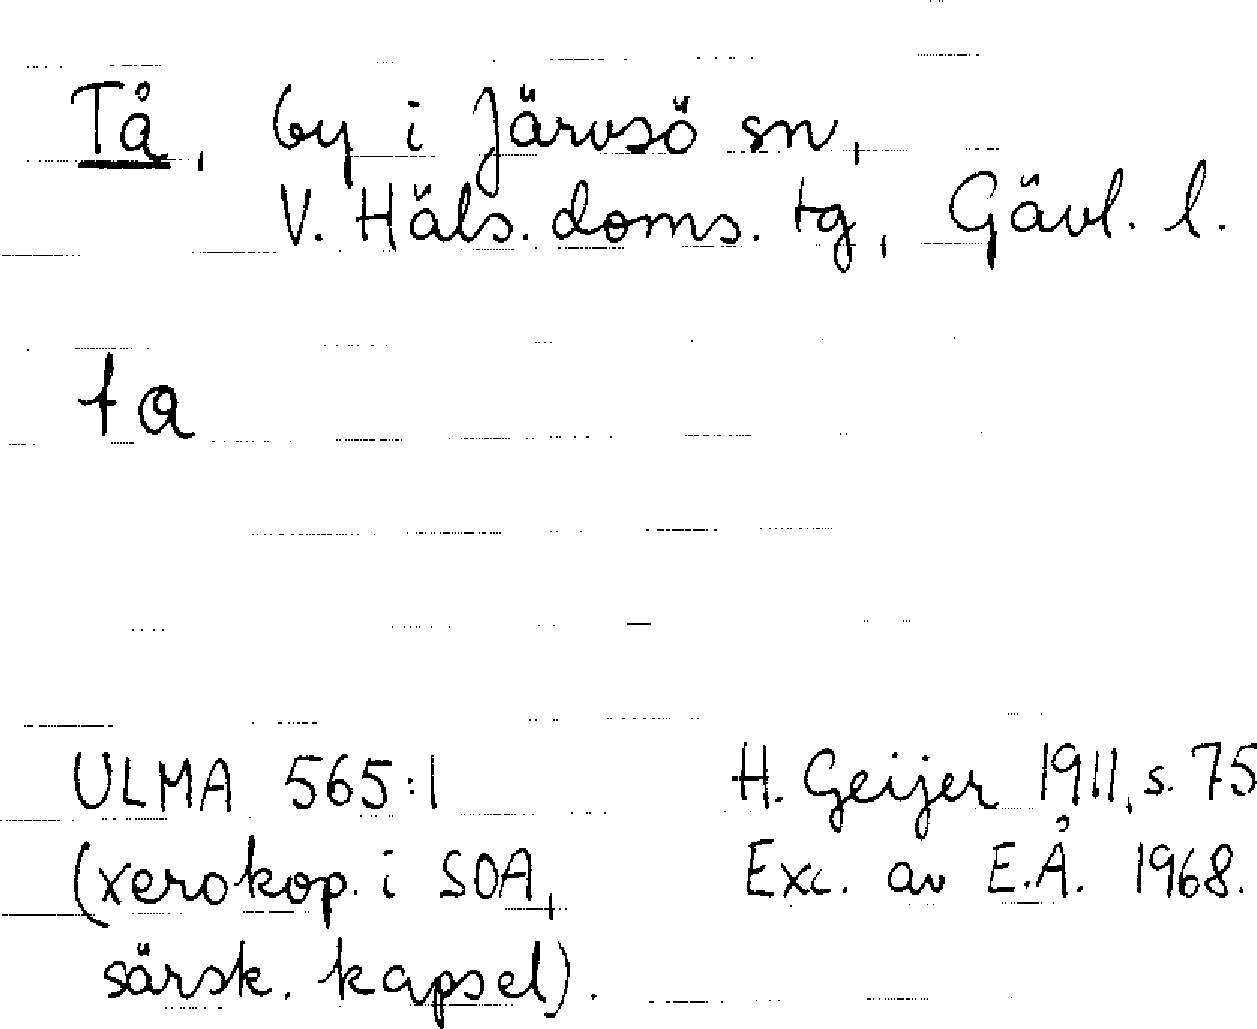 Tå, by i Järvsö sn,
V. Häls. doms. tg, Gävl. l.
ta
ULMA 565:1
(xerokop. i SOA,
särsk. kapsel).
H. Geijer 1911, s. 75
Exc. av E.Å. 1968.